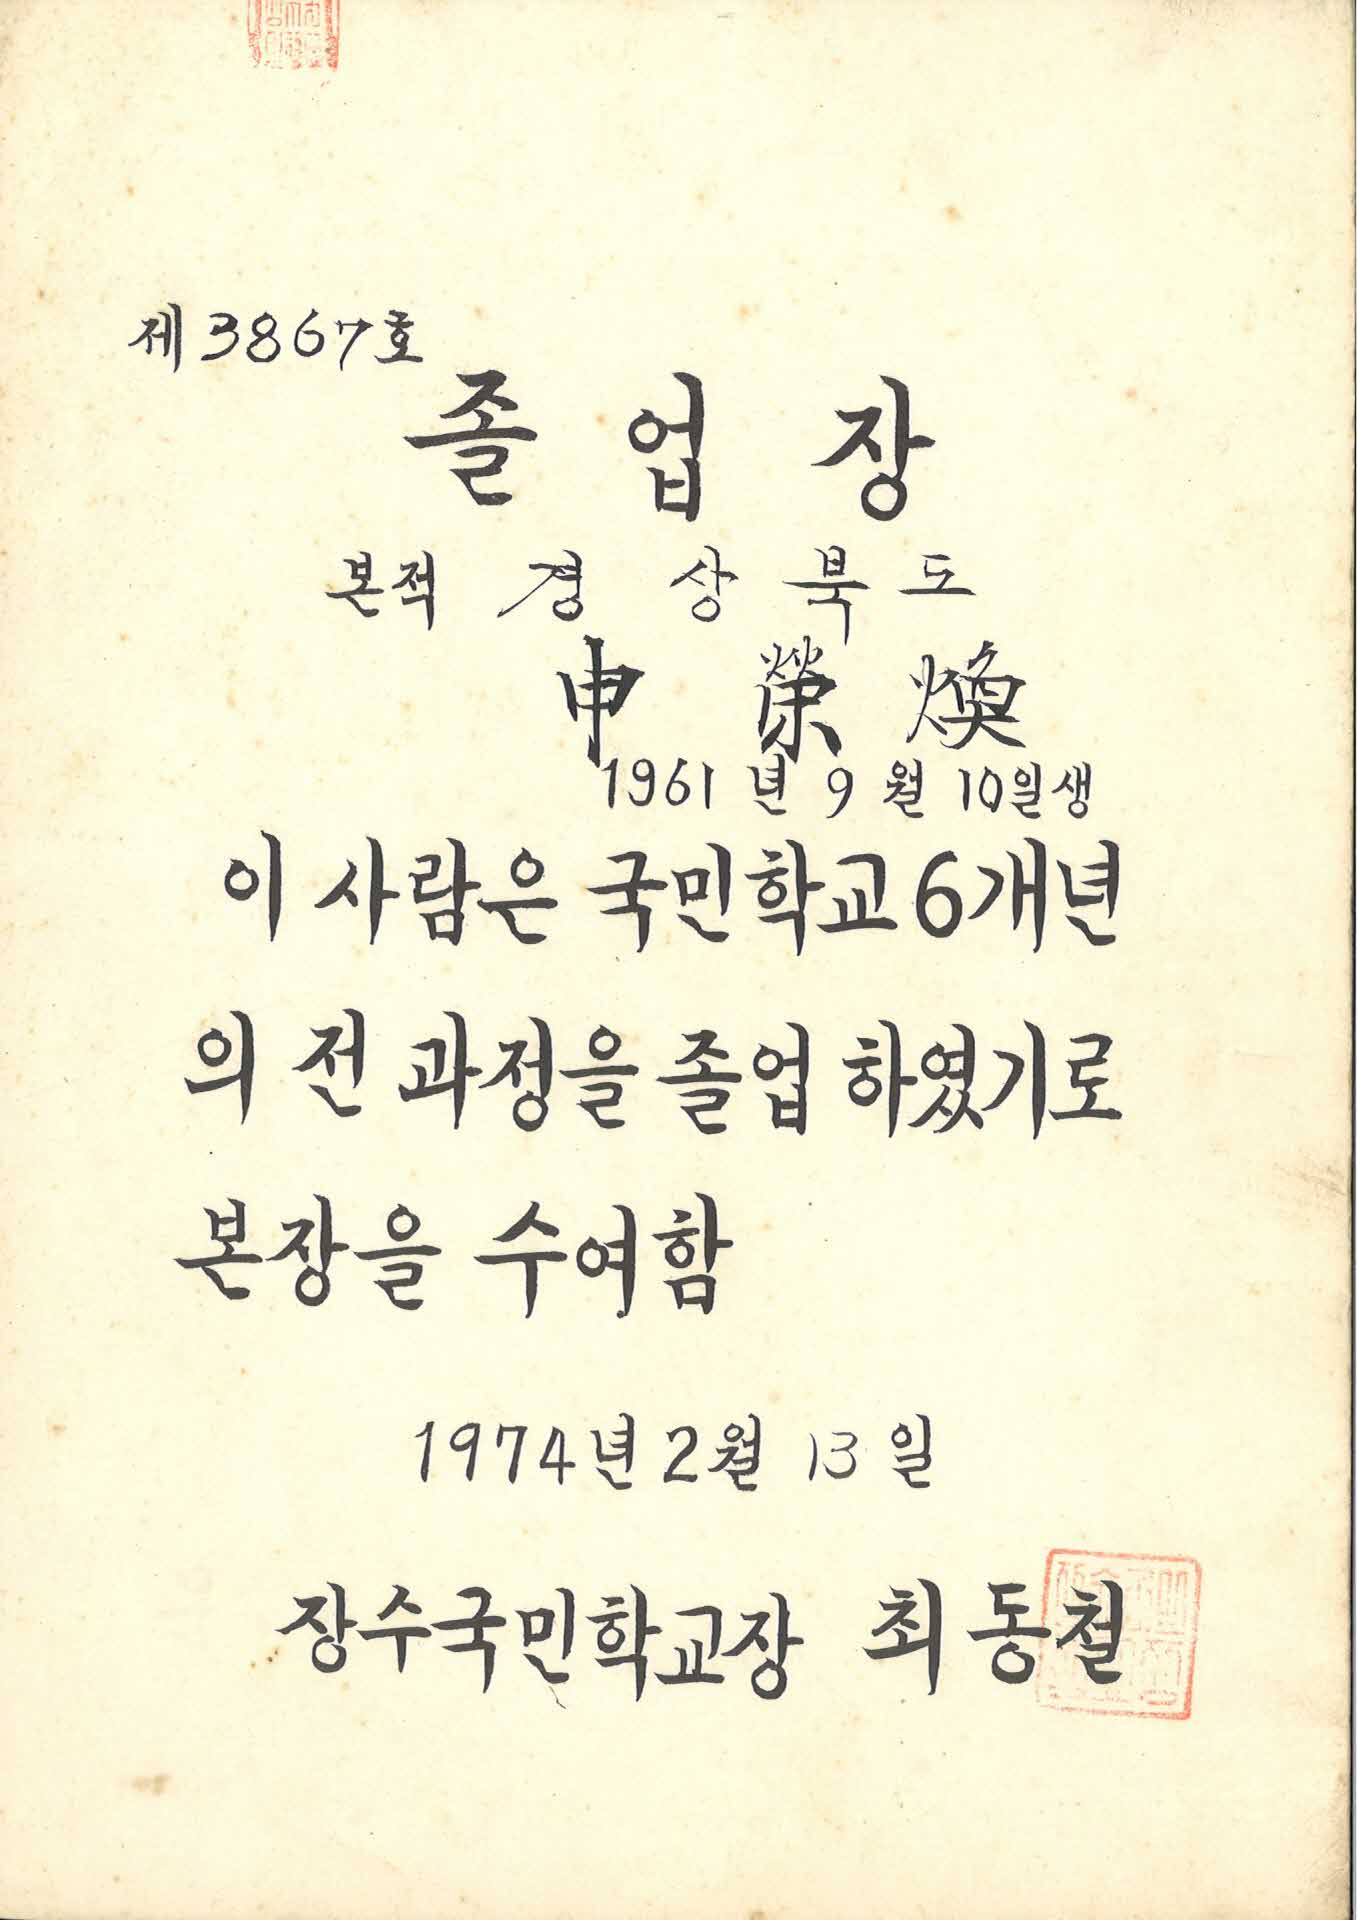 제 3867호
졸업장
본적 경상북도
申榮煥
1961년 9월 10일생
이 사람은 국민학교 6개년
의 전 과정을 졸업하였기로
본장을 수여함
1974년 2월 13일
장수국민학교장 최동철